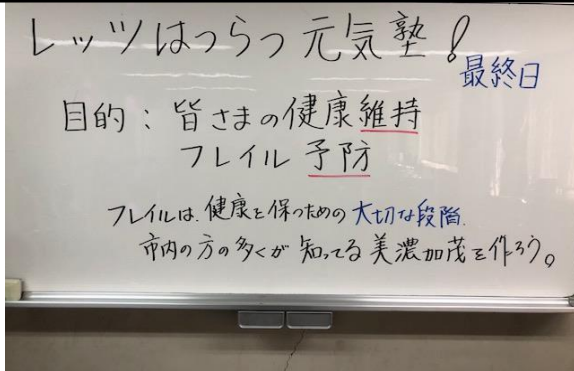 レッツはつらつ元気塾!
最終日
目的：皆さまの健康維持
フレイル予防
フレイルは、健康を保つための大切な段階。
市内の方の多くが知ってる美濃加茂を作ろう。